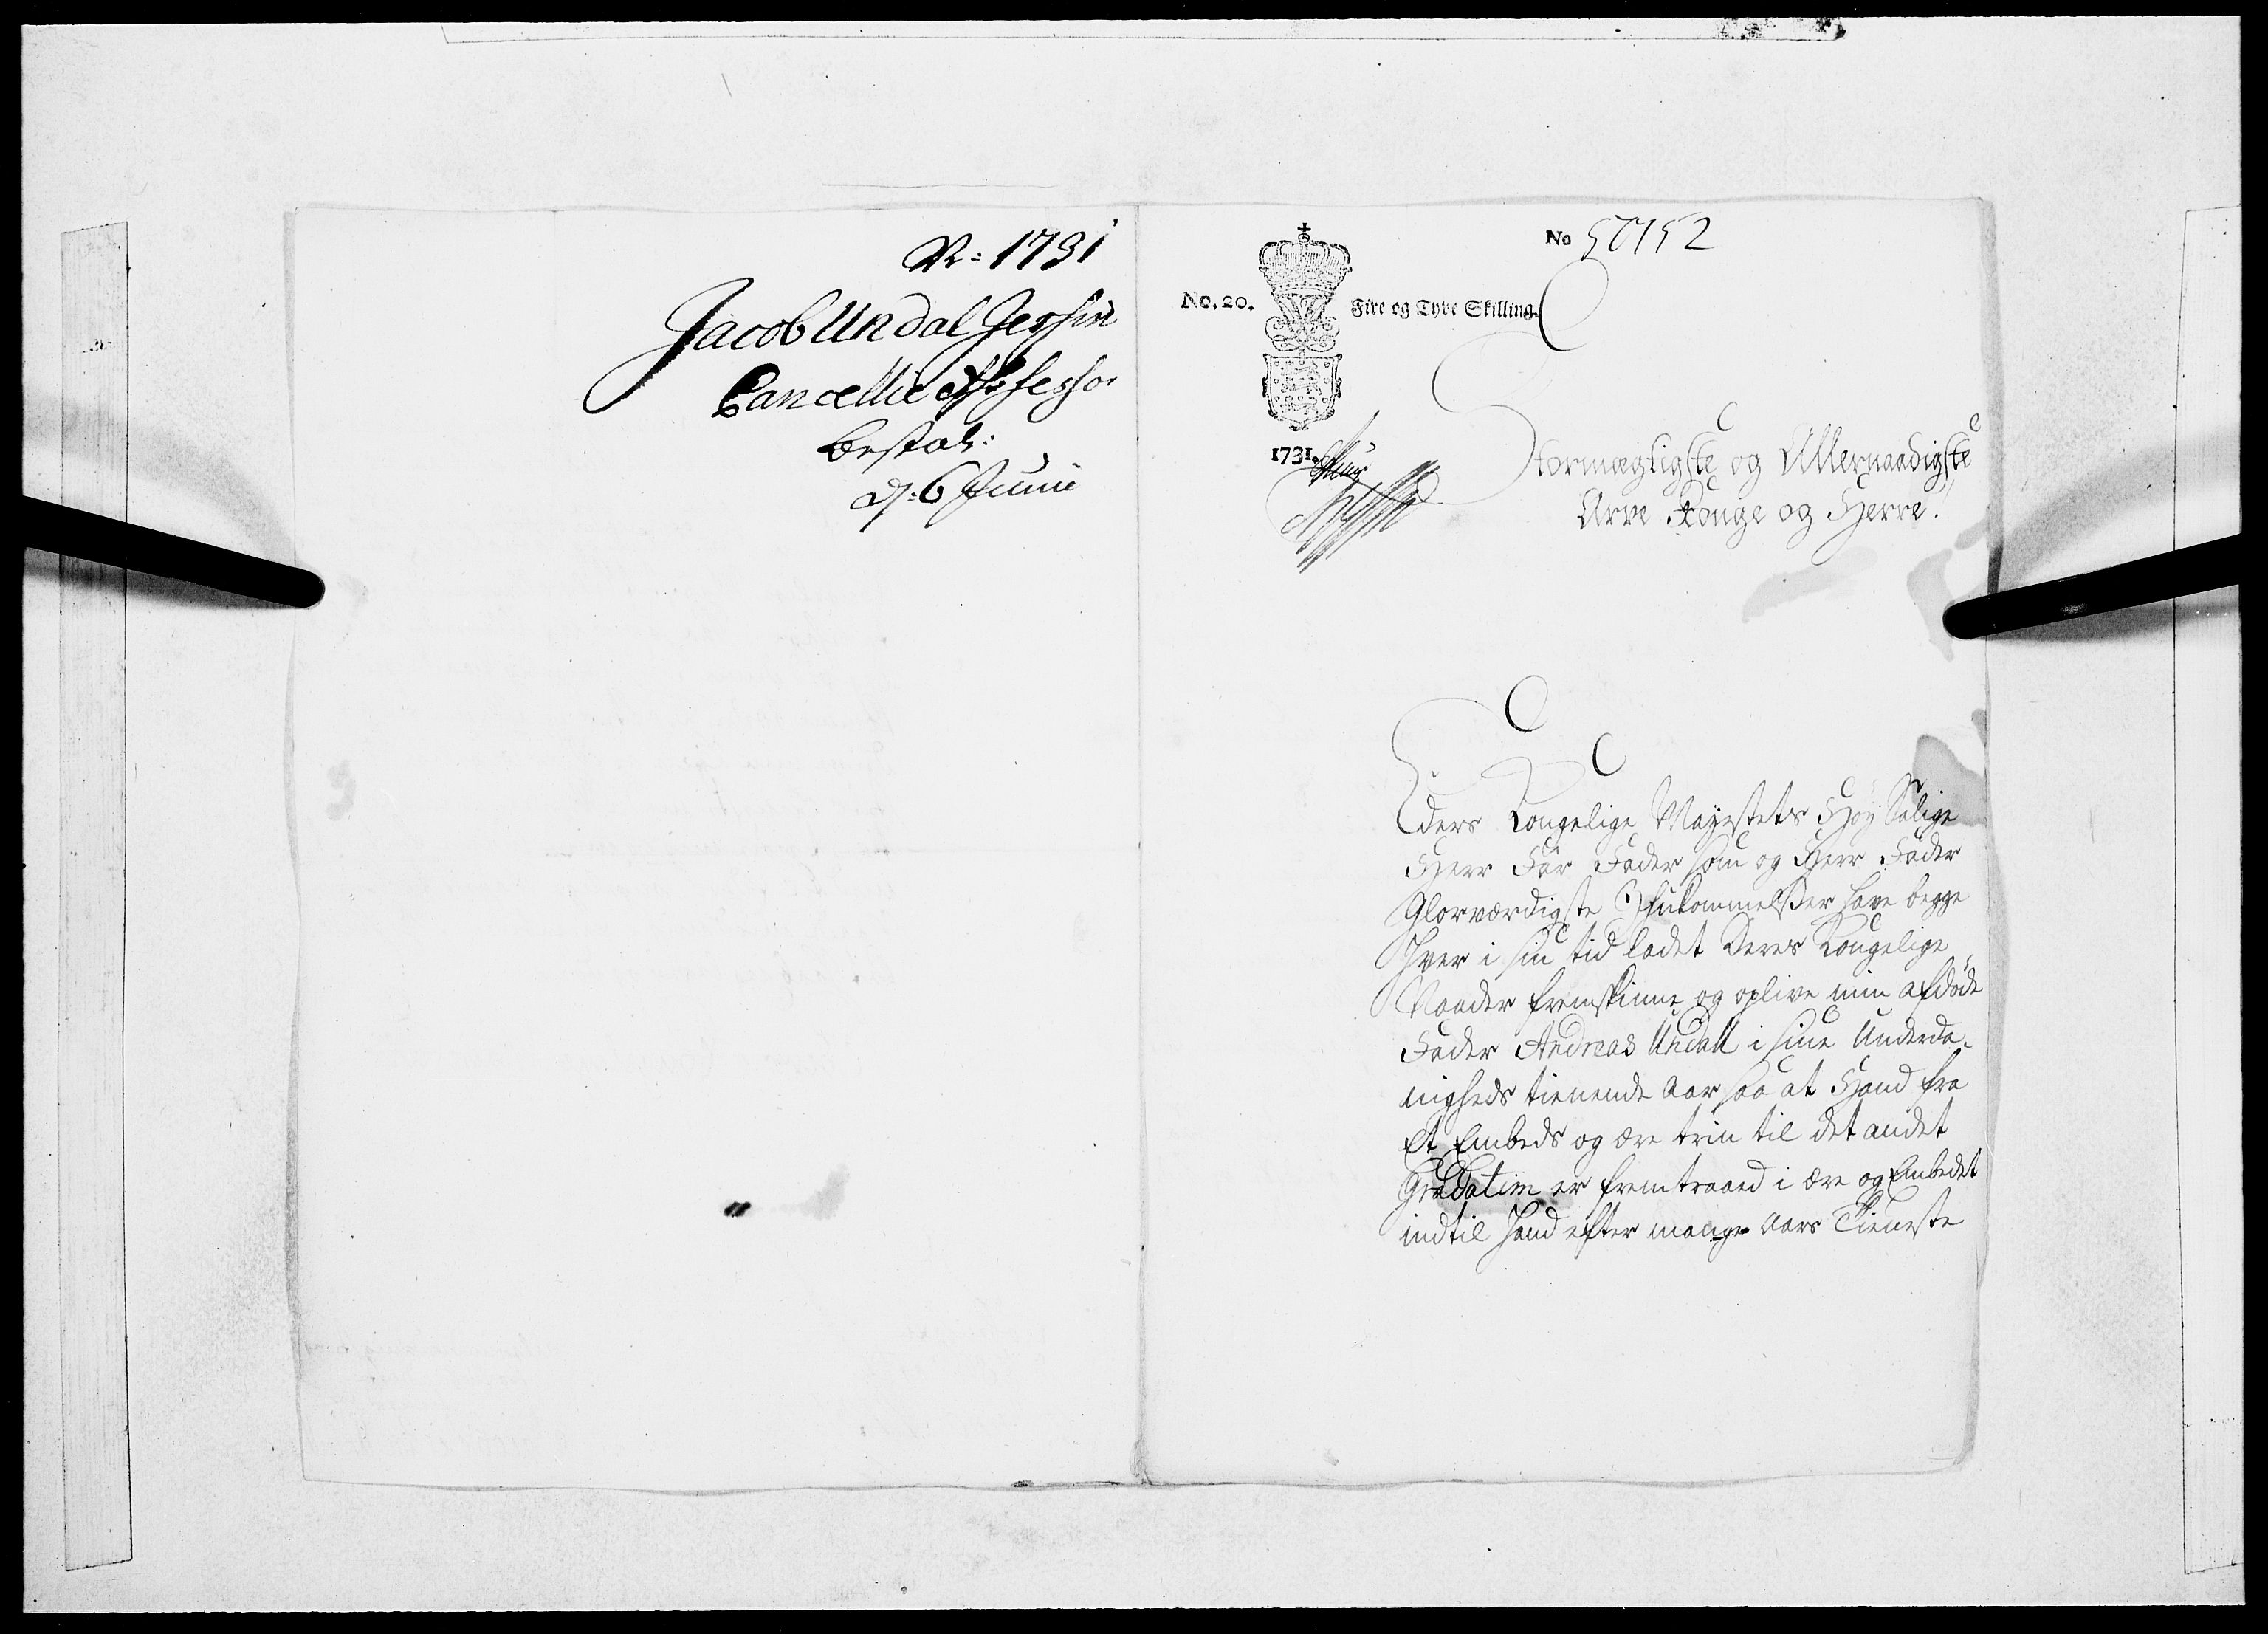 N: 1731
Jacob Undal Jersin
Cancellie Assessor
Bestal:
d: 6 Junii
No 50152
No. 20. Fire og Tyve Skilling.
1731.
Stormægtigste og Allernaadigste
Arve Konge og Herre!
Eders Kongelige Mayestets Høy Salige
Herr Far Fader som og Herr Fader
Glorværdigste Ihukommelser have begge
hver i sin tid ladet Deres Kongelige
Naader fremskinne og oplive min afdøde
Fader Andreas Undall i sine Underda-
nigheds tienende Aar saa at Hand fra
Et Embeds og ære trin til det andet
Gradatim er fremtraad i ære og Embedet
indtil hand efter mange Aars Tieneste